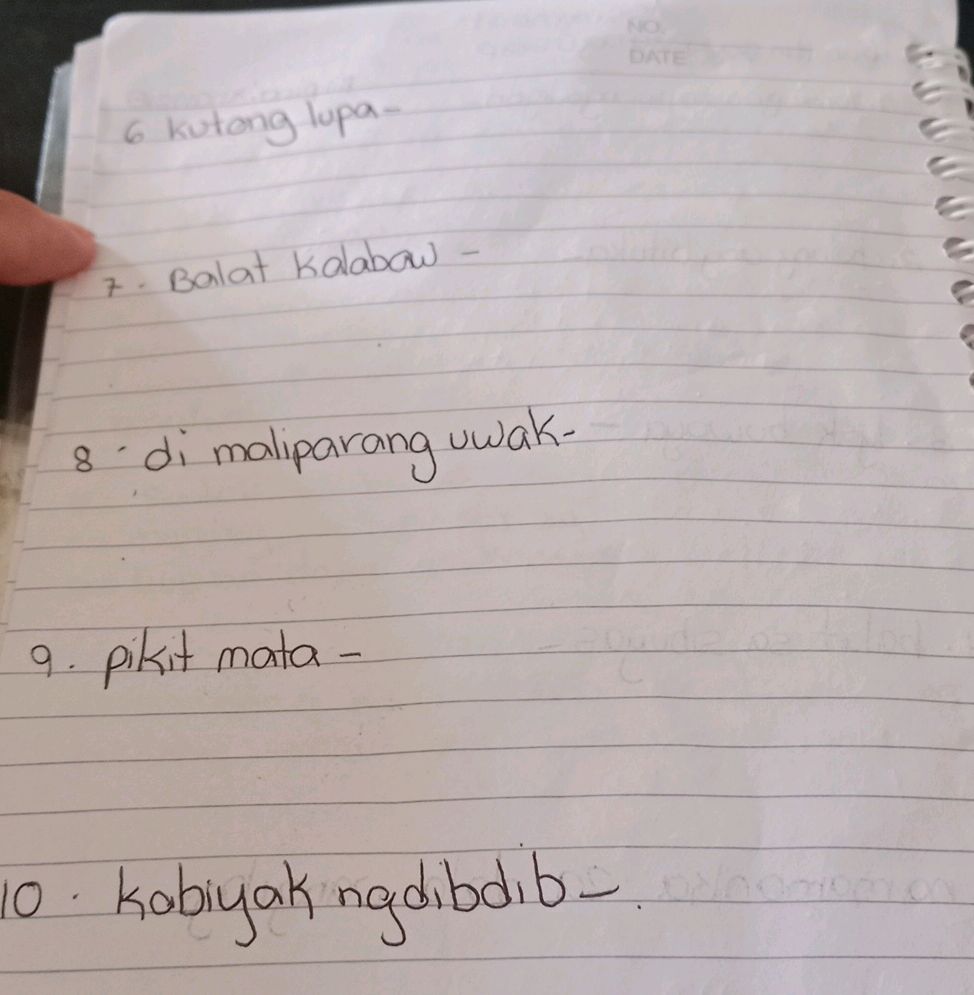 NO.
DATE
6 kutong lupa-
7. Balat Kalabaw -
8. di maliparang uwak-
9. pikit mata -
10. kabiyak ngdibdib-.